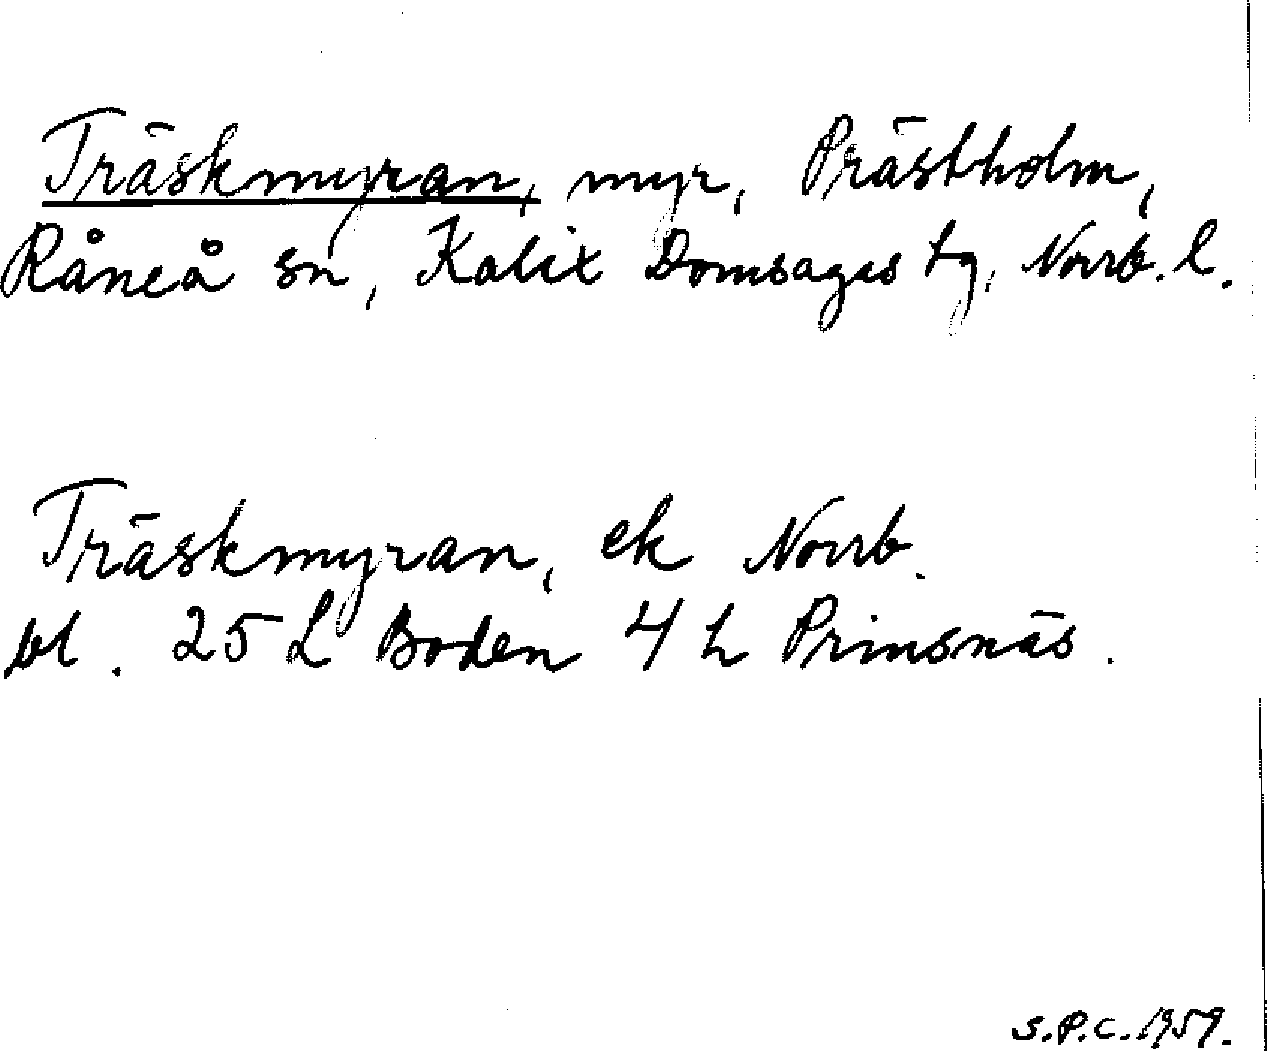 Träskmyran, myr, Prästholm,
Råneå sn, Kalix Domsagas tg, Norrb. l.
Träskmyran, ek Norrb.
bl. 25 L Boden 4 h Prinsnäs.
S.P.C. 1959.